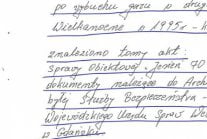 po wybuchu gazu o drug
Wielkanocne o 1995r -
znaleziono tomy akt:
sprawy Obiektowej "Jesień 70
dokumenty należące do Arch
byłej Służby Bezpieczeństwa
Wojewódzkiego Urzędu Spraw We
w Gdańsku